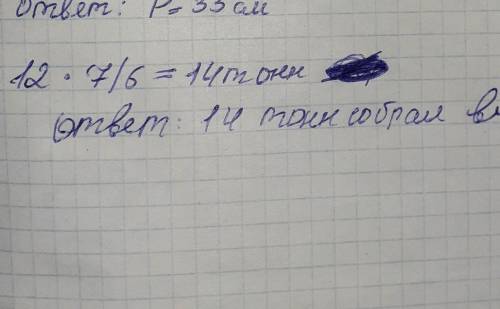 Ответ: P= 33 см
12 · 7/6 = 14 тонн
Ответ: 14 тонн собрал